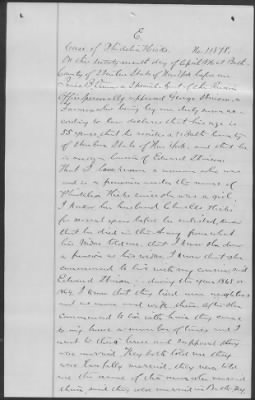 E
Case of Philetia Hicks No. 11898.
On this twenty seventh day of April 1886 at Bath
County of Steuben State of New York before me
a Special Agt. of the Pension
Office personally appeared George Stinson, a
Farmer who being by me duly sworn ac-
cording to law declares that his age is
55 years, that he resides at Bath County
of Steuben State of New York, and that he
is a cousin of Edward Stinson
That I have known a woman who was
and is a pensioner under the name of
Hicks since she was a girl
I knew her husband Charles Hicks
for several years before he enlisted, know
that he died in the Army from what
his widow told me, that I know she drew
a pension as his widow. I know that she
commenced to live with my cousin said
Edward Stinson during the year 1865 or
1866, I know that they lived near neighbors
and we were and after she
commenced to live with him they came
to my house a number of times and I
went to their house and supposed they
was married. They both told me they
were lawfully married, they never told
me the name of the man who married
them, said they were married in Bath Ny.